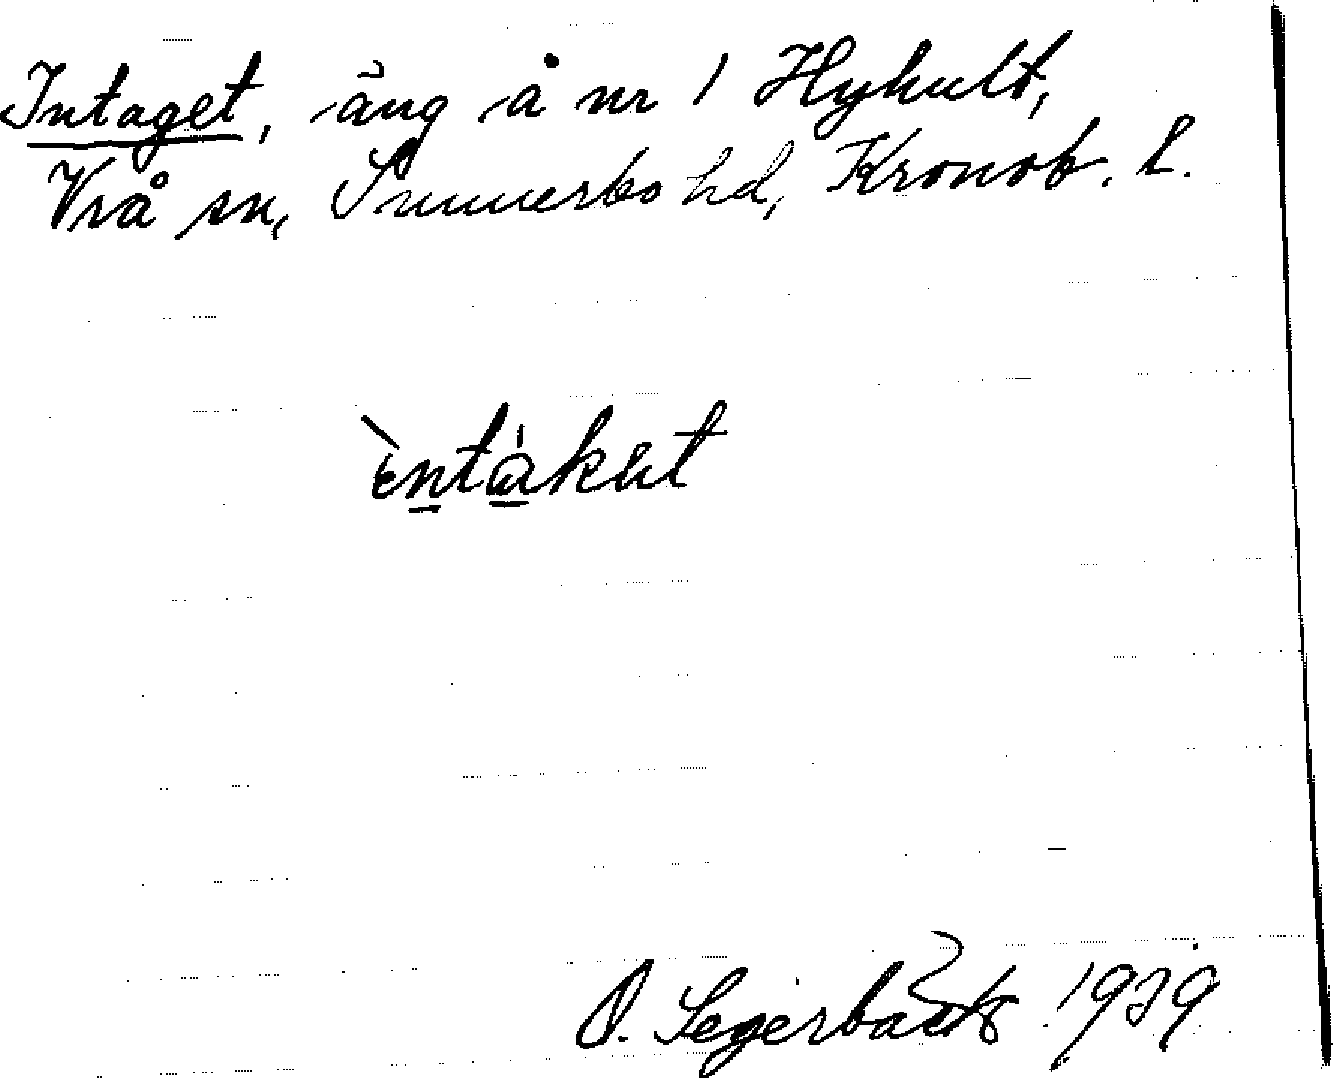 Intaget, äng å nr 1 Hykult,
Vrå sn, Sunnerbo hd, Kronob. l.
O. Segerbäck 1939